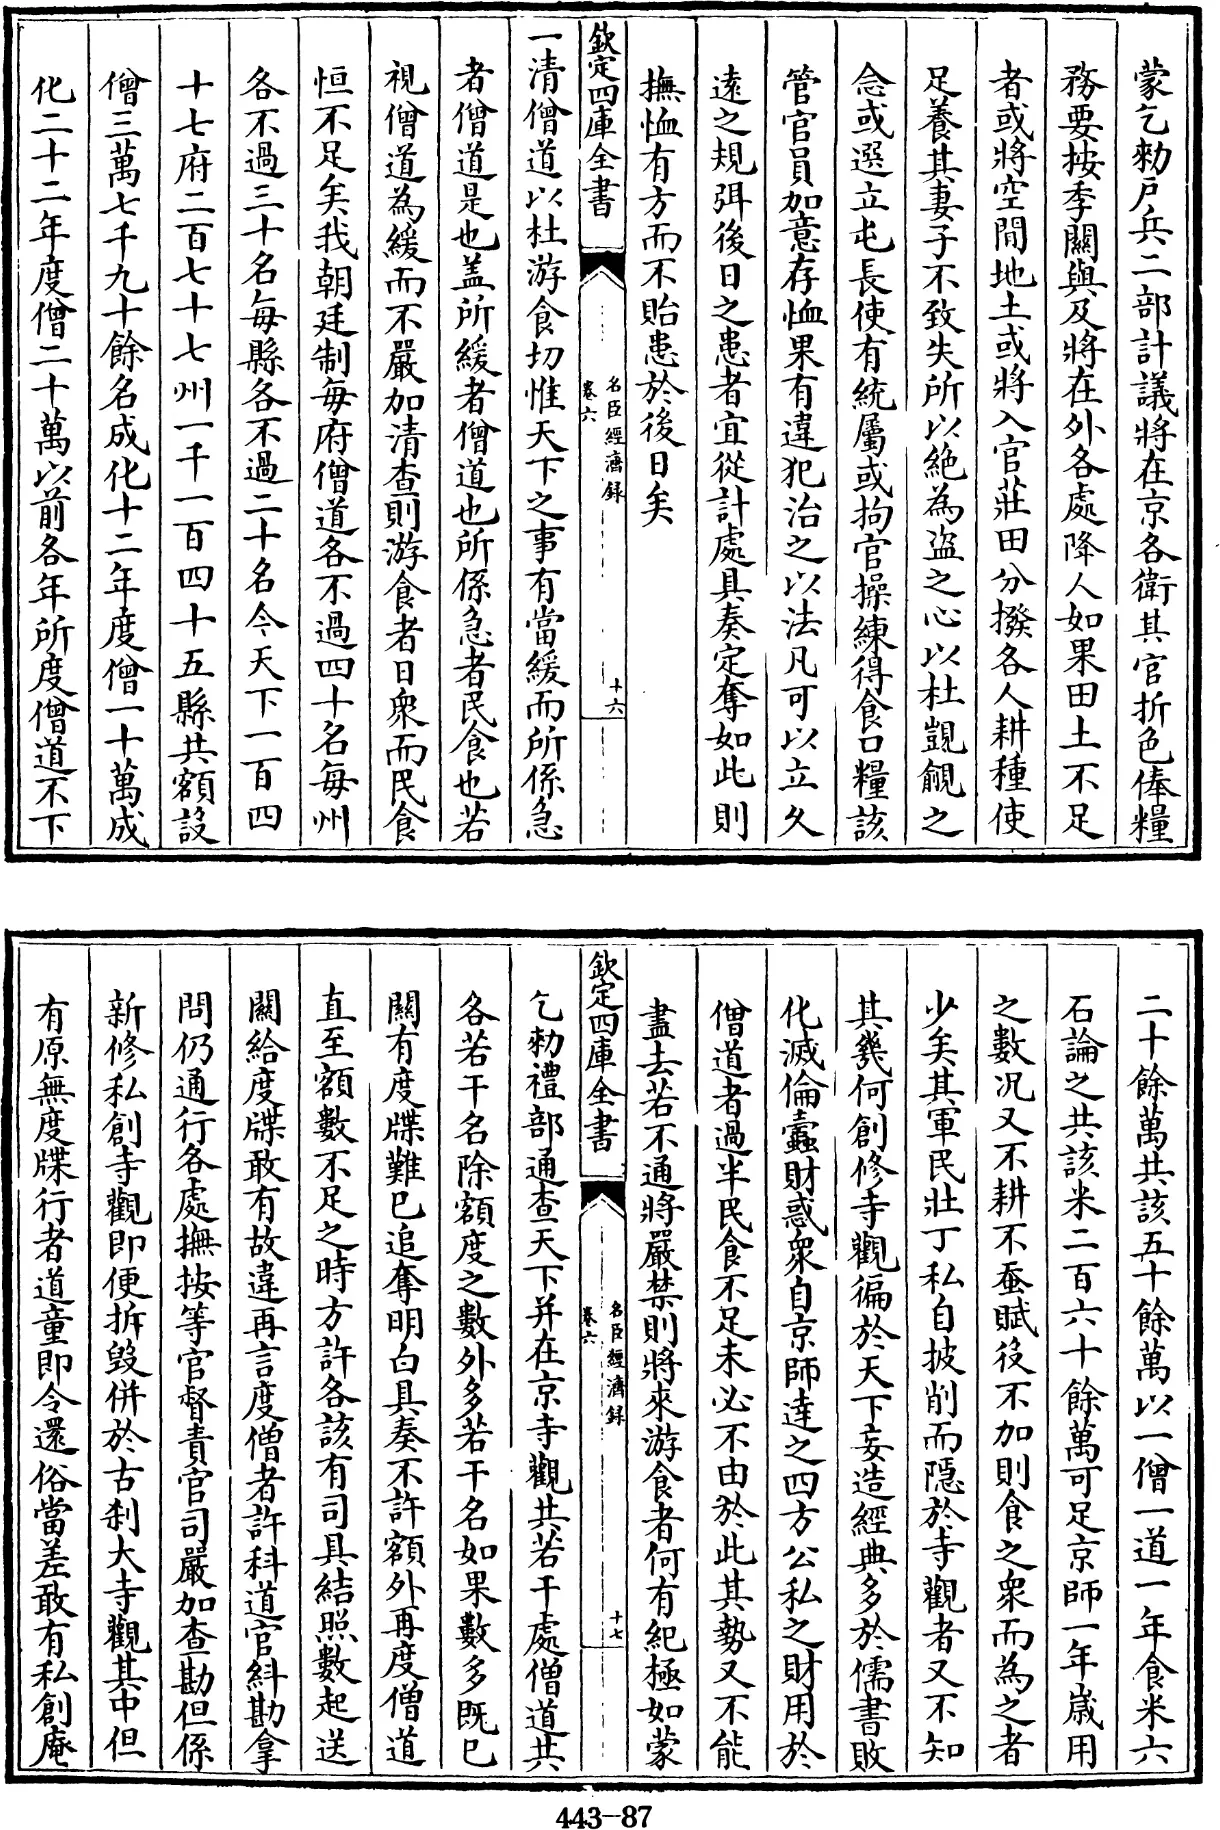 蒙乞勅戶兵二部計議將在京各衛其官折色俸糧
務要按季關與及將在外各處降人如果田土不足
者或將空閒地土或將入官莊田分撥各人耕種使
足養其妻子不致失所以絶為盜之心以杜覬覦之
念或選立屯長使有統屬或拘官操練得食口糧該
管官員加意存恤果有違犯治之以法凡可以立久
遠之規弭後日之患者宜從計處具奏定奪如此則
撫恤有方而不貽患於後日矣
欽定四庫全書
名臣經濟錄
卷六
十六
一清僧道以杜游食切惟天下之事有當緩而所係急
者僧道是也盖所緩者僧道也所係急者民食也若
視僧道為緩而不嚴加清查則游食者日衆而民食
恒不足矣我朝廷制每府僧道各不過四十名每州
各不過三十名每縣各不過二十名今天下一百四
十七府二百七十七州一千一百四十五縣共額設
僧三萬七千九十餘名成化十二年度僧一十萬成
化二十二年度僧二十萬以前各年所度僧道不下
二十餘萬共該五十餘萬以一僧一道一年食米六
石論之共該米二百六十餘萬可足京師一年嵗用
之數况又不耕不蚕賦役不加則食之衆而為之者
少矣其軍民壯丁私自披削而隱於寺觀者又不知
其幾何創修寺觀徧於天下妄造經典多於儒書敗
化滅倫蠧財惑衆自京師達之四方公私之財用於
僧道者過半民食不足未必不由於此其勢又不能
盡去若不通將嚴禁則將來游食者何有紀極如蒙
欽定四庫全書
名臣經濟錄
卷六
十七
乞勅禮部通查天下并在京寺觀共若干處僧道共
各若干名除額度之數外多若干名如果數多既已
關有度牒難已追奪明白具奏不許額外再度僧道
直至額數不足之時方許各該有司具結照數起送
關給度牒敢有故違再言度僧者許科道官糾劾拿
問仍通行各處撫按等官督責官司嚴加查勘但係
新修私創寺觀即便拆毀併於古刹大寺觀其中但
有原無度牒行者道童即令還俗當差敢有私創庵
443-87